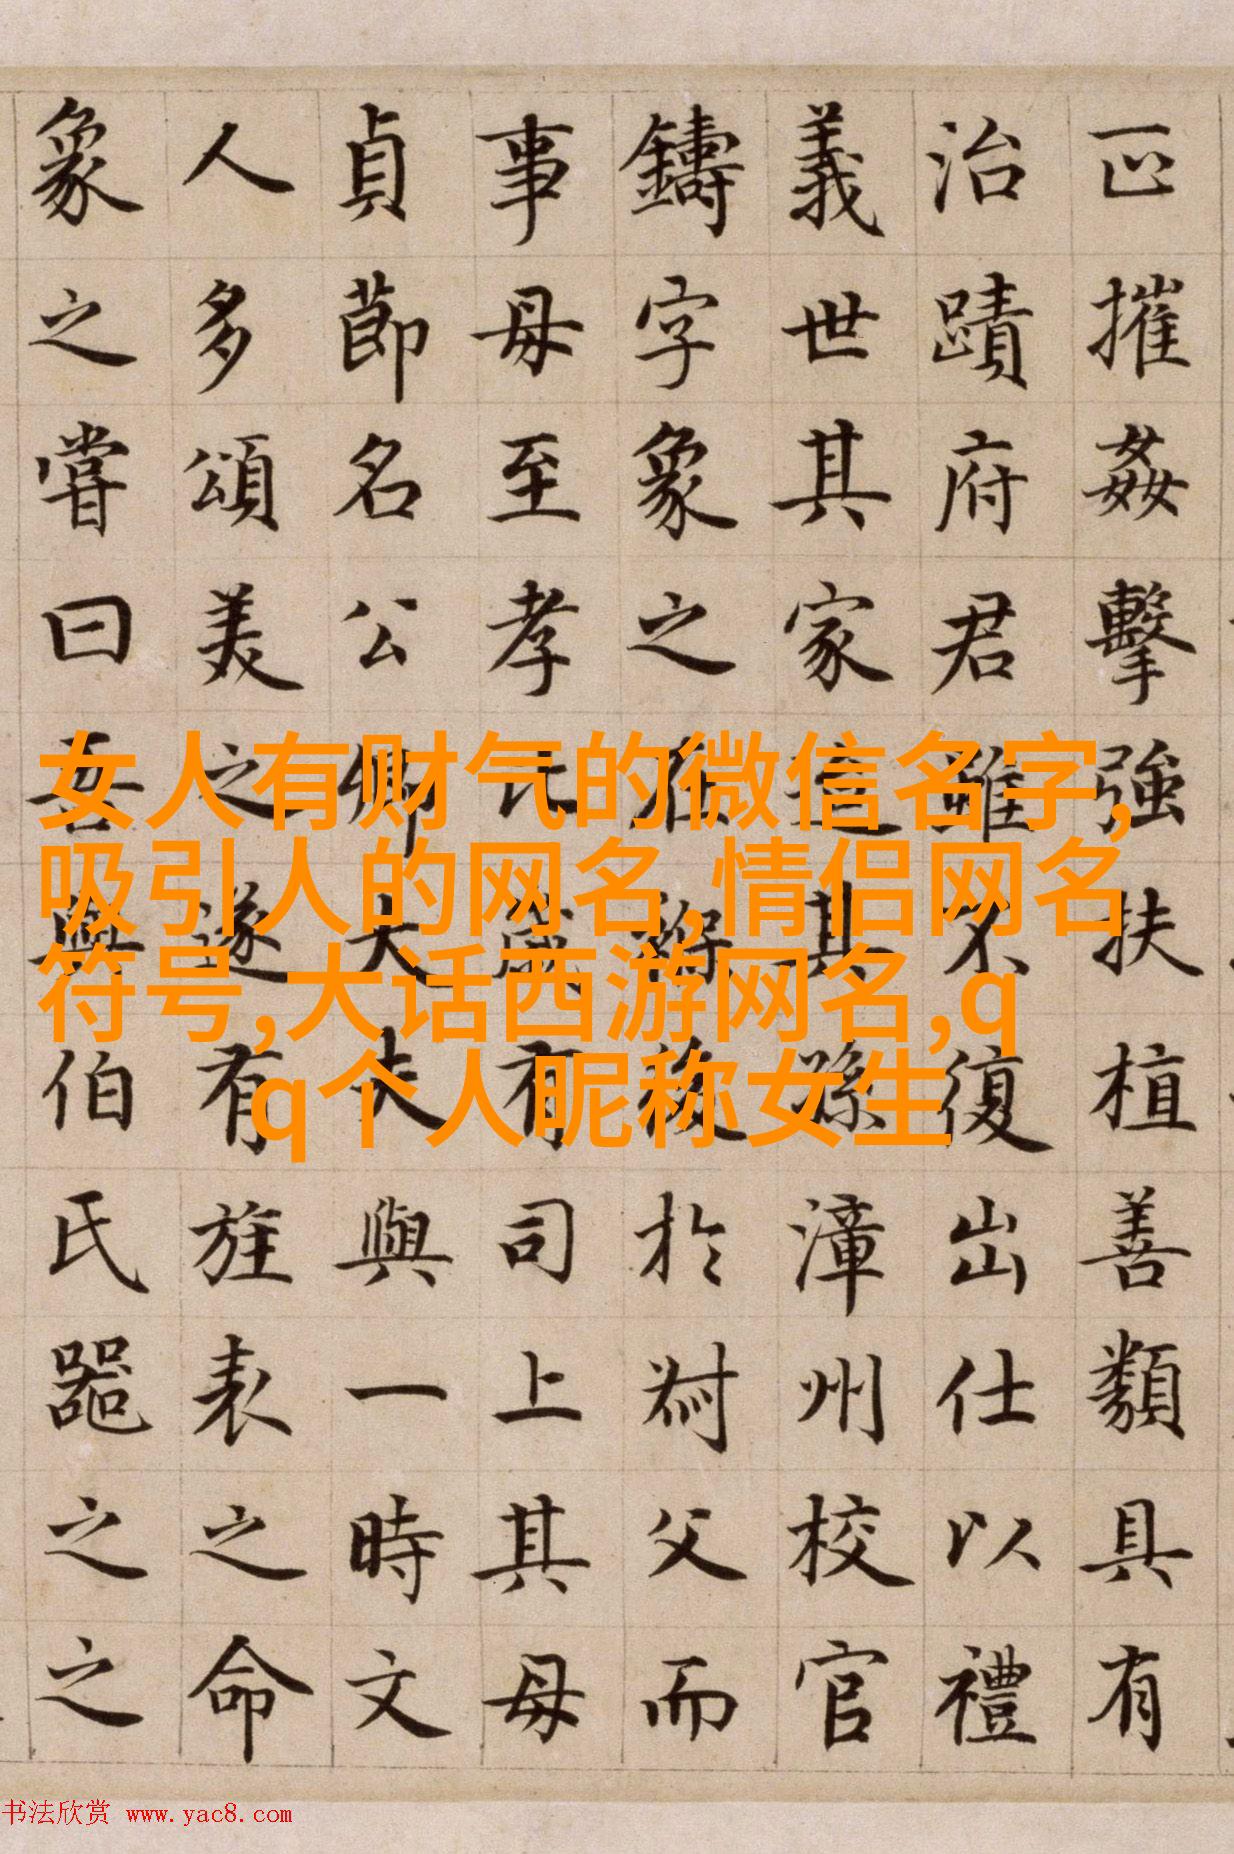 摧姦擊強扶植善類具有
治蹟府君雖不復出仕以禮
義世其家其孫漳州校官
鑄字象之在於父而
事母至孝七歲有司上其母
貞節名公卿大夫與一時文
人多頌美之遂有旌表之命
象之嘗曰吾與伯氏器之之
女人有财气的微信名字,
吸引人的网名,情侣网名
符号,大话西游网名,q
q个人昵称女生
书法欣赏 www.yac8.com